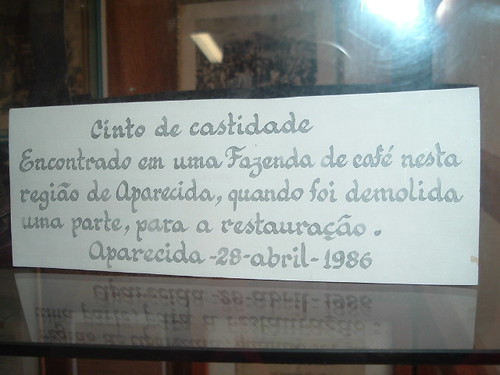 Cinto de castidade
Encontrado em uma Fazenda de café nesta
região de Aparecida, quando foi demolida
uma parte, para a restauração.
Aparecida -28-abril-1986